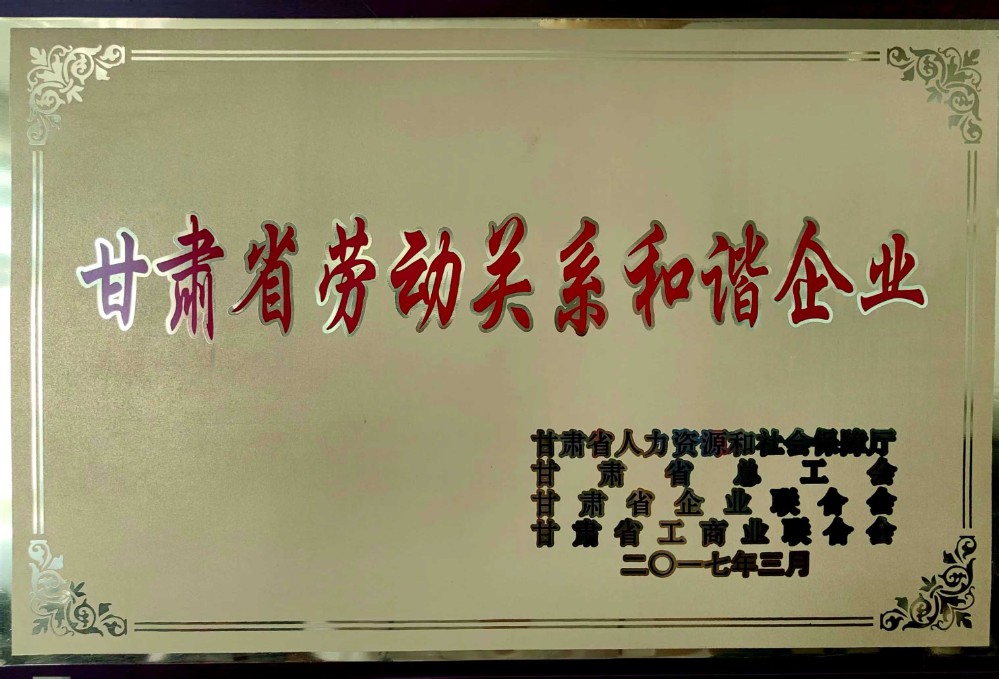 甘肃省劳动关系和谐企业
甘肃省人力资源和社会保障厅
甘肃省总工会
甘肃省企业联合会
甘肃省工商业联合会
二〇一七年三月